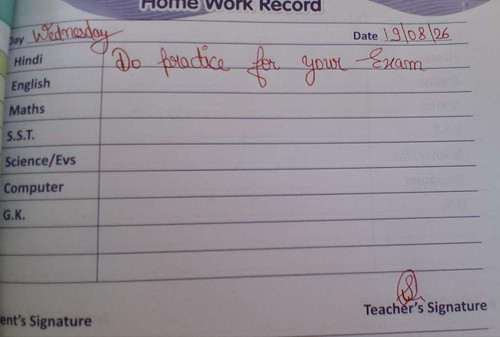 Home Work Record
Day Wednesday Date 19/08/26
Hindi Do practice for your Exam
English
Maths
S.S.T.
Science/Evs
Computer
G.K.
Teacher's Signature
ent's Signature